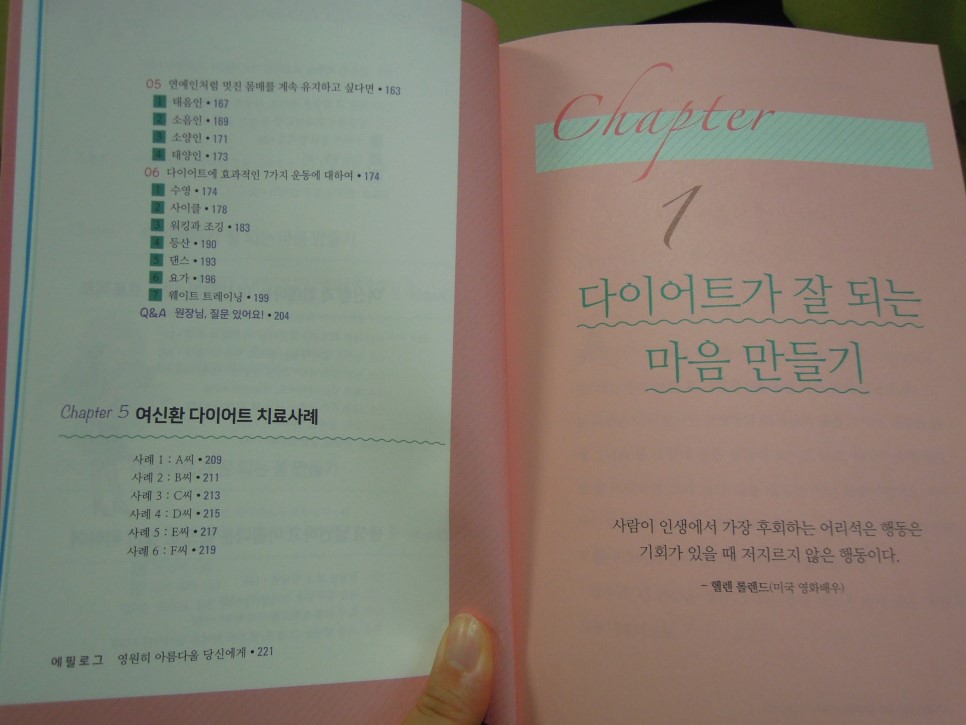 05 연예인처럼 멋진 몸매를 계속 유지하고 싶다면 • 163
1 태음인 • 167
2 소음인 • 169
3 소양인 • 171
4 태양인 • 173
06 다이어트에 효과적인 7가지 운동에 대하여 • 174
1 수영 • 174
2 사이클 • 178
3 워킹과 조깅 • 183
4 등산 • 190
5 댄스 • 193
6 요가 • 196
7 웨이트 트레이닝 • 199
Q&A 원장님, 질문 있어요! • 204
Chapter 5 여신환 다이어트 치료사례
사례 1 : A씨 • 209
사례 2 : B씨 • 211
사례 3 : C씨 • 213
사례 4 : D씨 • 215
사례 5 : E씨 • 217
사례 6 : F씨 • 219
에필로그 영원히 아름다울 당신에게 • 221
Chapter
1
다이어트가 잘 되는
마음 만들기
사람이 인생에서 가장 후회하는 어리석은 행동은
기회가 있을 때 저지르지 않은 행동이다.
- 헬렌 롤렌드(미국 영화배우)